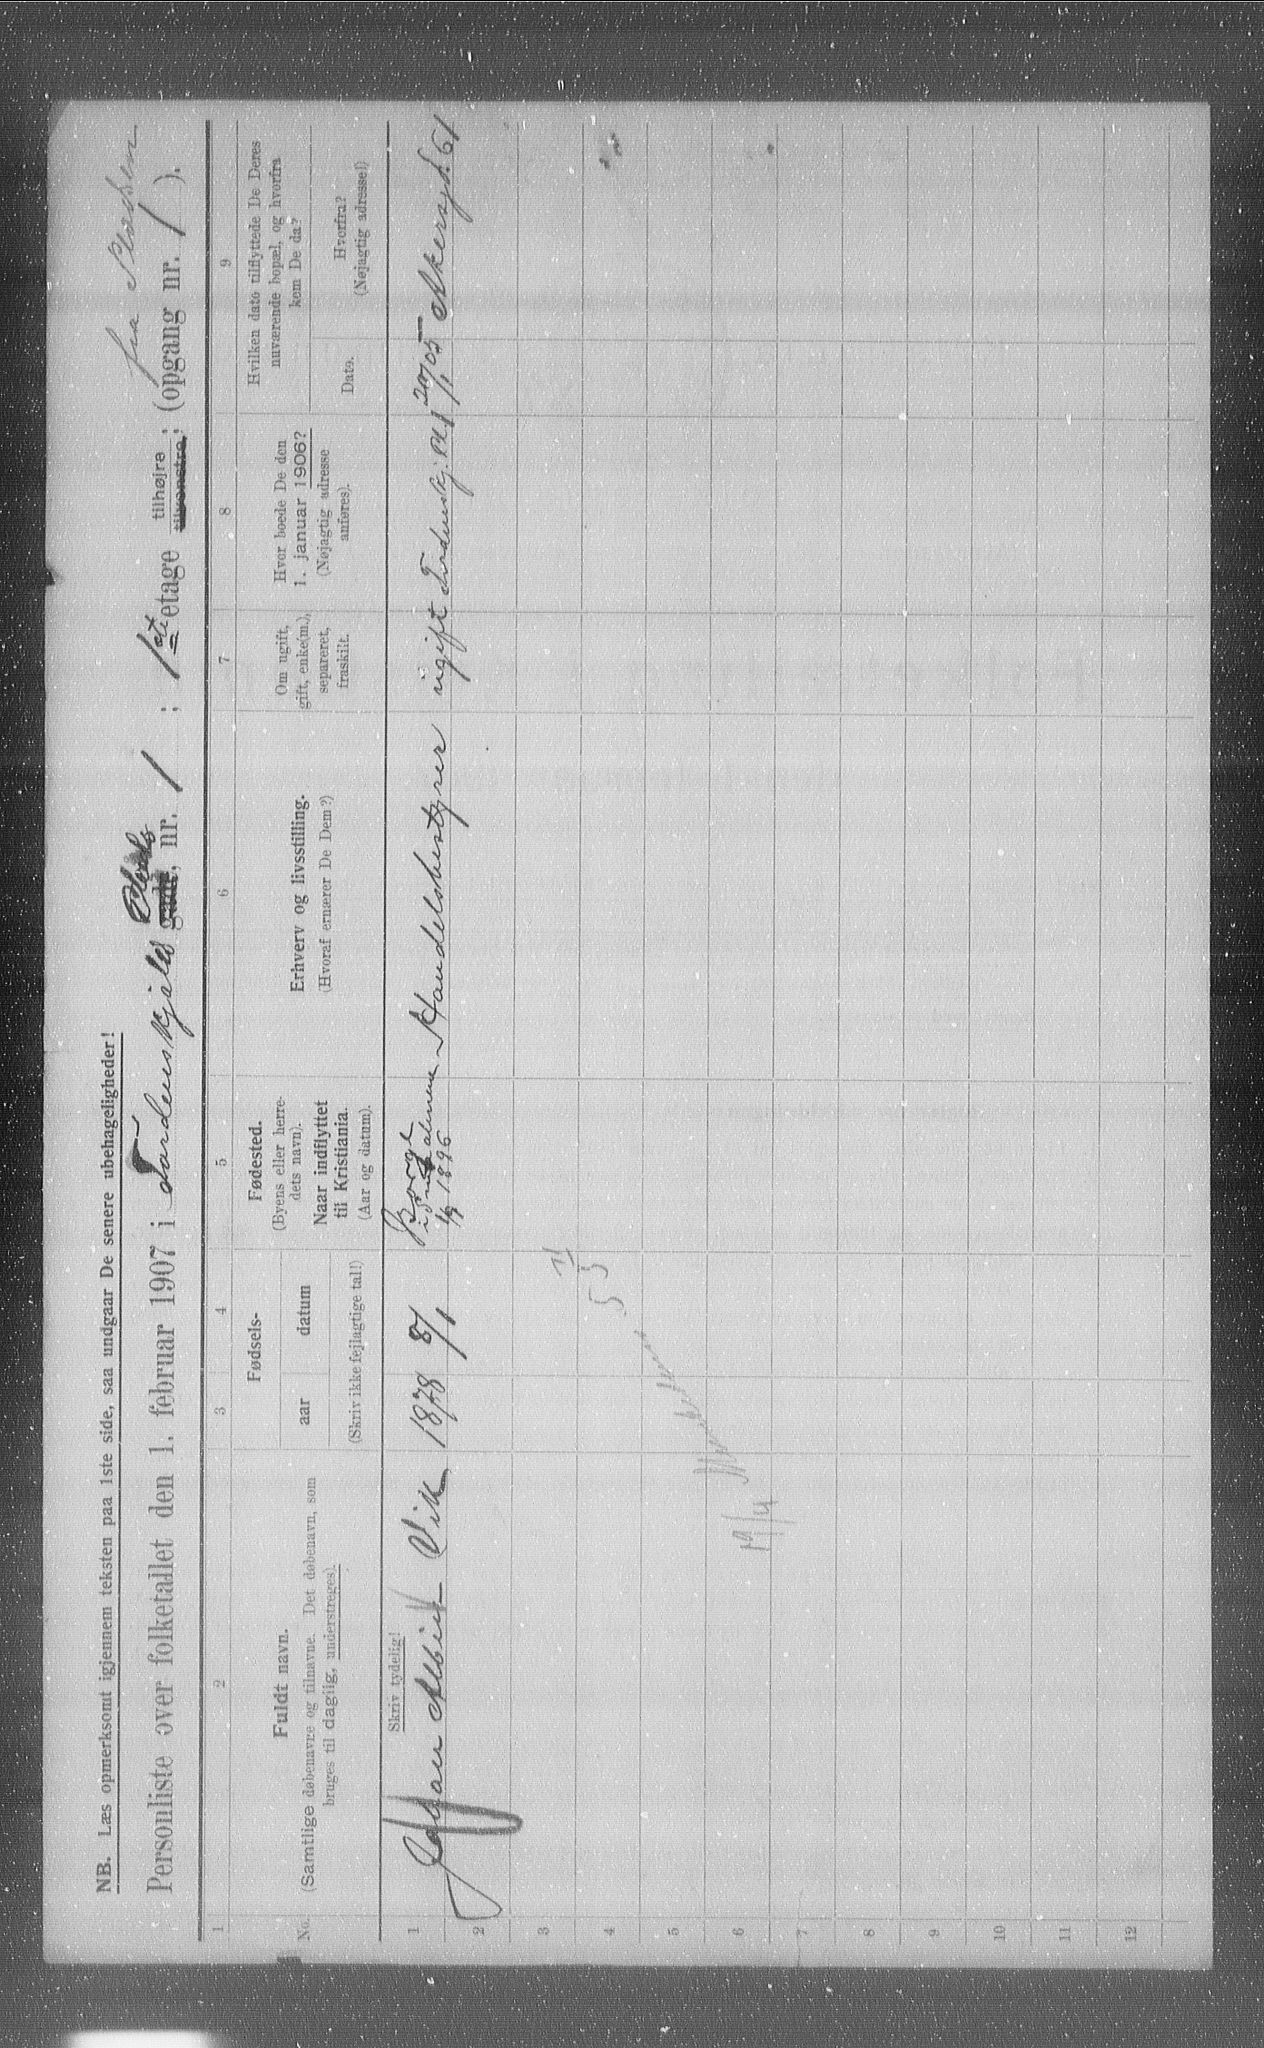 NB. Læs opmerksomt igjennem teksten paa 1ste side, saa undgaar De senere ubehageligheder!
fra Pladsen
Personliste over folketallet den 1. februar 1907 i Tordenskjolds Plads gade, nr. 1 ; 1ste etage tilhøjre tilvenstre ; (opgang nr. / ).
1 2 3 4 5 6 7 8 9
No.
Fuldt navn.
(Samtlige døbenavne og tilnavne. Det døbenavn, som
bruges til daglig, understreges).
Fødsels-
aar datum
(Skriv ikke fejlagtige tal!)
Fødested.
(Byens eller herre-
dets navn).
Naar indflyttet
til Kristiania.
(Aar og datum).
Erhverv og livsstilling.
(Hvoraf ernærer De Dem?)
Om ugift,
gift, enke(m.),
separeret,
fraskilt.
Hvor boede De den
1. januar 1906?
(Nøjagtig adresse
anføres).
Hvilken dato tilflyttede De Deres
nuværende bopæl, og hvorfra
kom De da?
Dato.
Hvorfra?
(Nøjagtig adresse!)
Skriv tydelig!
1 Johan Vik 1878 8/1 Borge
i Smaalenene
1895
Handelsbestyrer ugift Tordenskj. Pl 1 20/1 05 Akersgt. 61
2
3
4
5
6
7
8
9
10
11
12
19/4